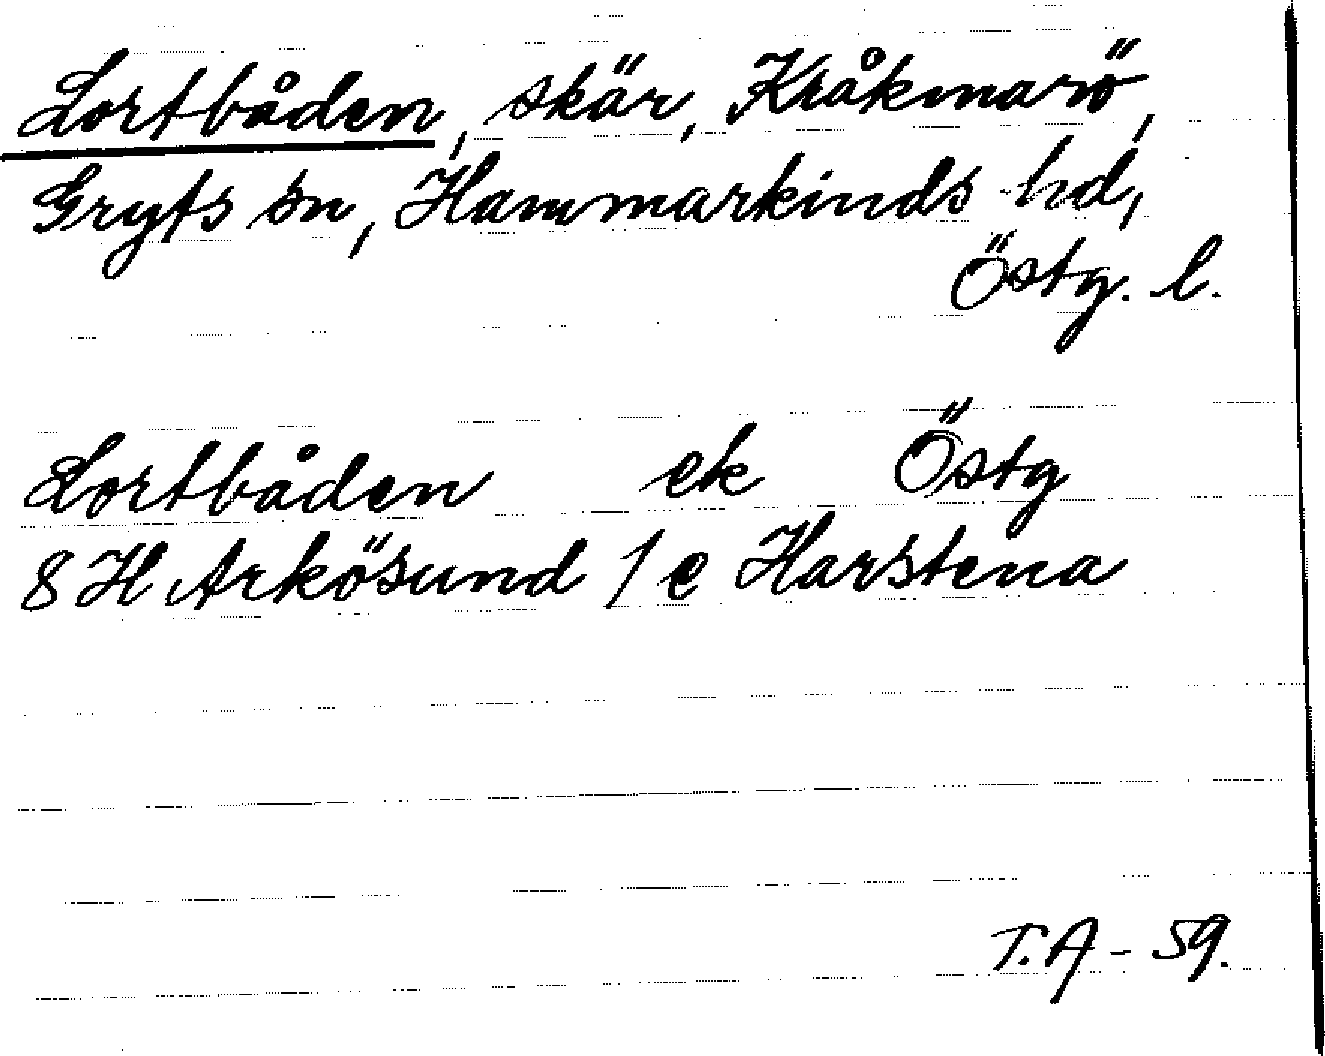 Lortbåden, skär, Kråkmarö,
Gryts sn, Hammarkinds hd,
Östg. l.
Lortbåden ek Östg
8 H Arkösund 1 e Harstena
T.A - 59.